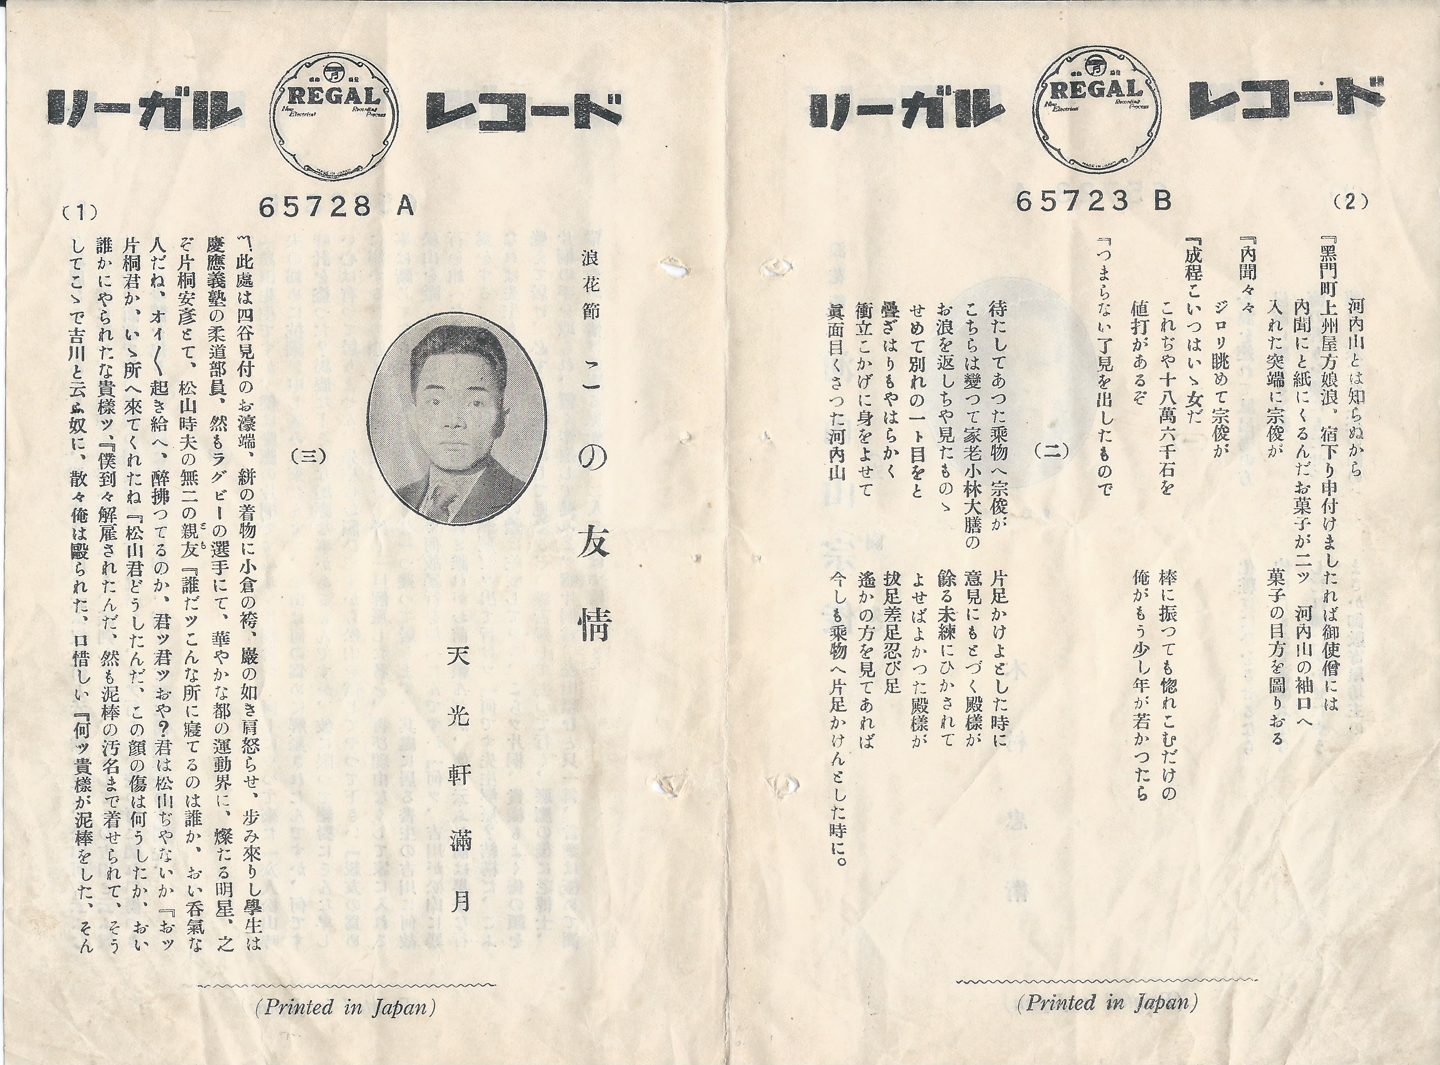 リーガル レコード
REGAL
New Electrical
Recording Process
MADE IN JAPAN
65723 B
(2)
河內山とは知らぬから
『黑門町上州屋方娘浪、宿下り申付けましたれば御使僧には
內聞にと紙にくるんだお菓子が二ツ 河內山の袖口へ
入れた突端に宗俊が 菓子の目方を圖りおる
『內聞々々
ジロリ眺めて宗俊が
『成程こいつはいゝ女だ
これぢや十八萬六千石を 棒に振つても惚れこむだけの
値打があるぞ 俺がもう少し年が若かつたら
『つまらない了見を出したもので
(二)
待たしてあつた乘物へ宗俊が 片足かけよとした時に
こちらは變つて家老小林大膳の 意見にもとづく殿樣が
お浪を返しちや見たものゝ 餘る未練にひかされて
せめて別れの一ト目をと よせばよかつた殿樣が
疊ざはりもやはらかく 拔足差足忍び足
衝立こかげに身をよせて 遙かの方を見てあれば
眞面目くさつた河內山 今しも乘物へ片足かけんとした時に。
(Printed in Japan)
リーガル レコード
REGAL
New Electrical
Recording Process
MADE IN JAPAN
65728 A
(1)
浪花節 この友情
天光軒滿月
(三)
『此處は四谷見付のお濠端、絣の着物に小倉の袴、巖の如き肩怒らせ、步み來りし學生は
慶應義塾の柔道部員、然もラグビーの選手にて、華やかな都の運動界に、燦たる明星、之
ぞ片桐安彥とて、松山時夫の無二の親友『誰だツこんな所に寢てるのは誰か、おい呑氣な
人だね、オイ〳〵起き給へ、醉拂つてるのか、君ツ君ツおや?君は松山ぢやないか『おッ
片桐君か、いゝ所へ來てくれたね『松山君どうしたんだ、この顏の傷は何うしたか、おい
誰かにやられたな貴樣ツ、『僕到々解雇されたんだ、然も泥棒の汚名まで着せられて、そう
してこゝで吉川と云ふ奴に、散々俺は毆られた、口惜しい『何ッ貴樣が泥棒をした、そん
(Printed in Japan)